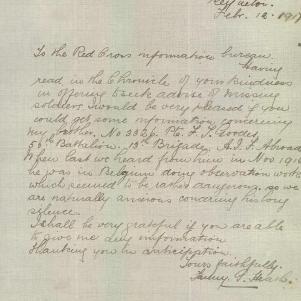 Feb. 12. 1917
To the Red Cross information bureau.
Having
read in the Chronicle of your kindness
in offering to seek advise of missing
soldiers, I would be very pleased if you
could get some information concerning
my brother. No 3326. Pte. F. T.
56th Battalion. 13th Brigade. A.I.F. Abroad
When last we heard from him in Nov 1916
he was in Belgium doing observation work
which seemed to be rather dangerous. so we
are naturally anxious his long
silence.
I shall be very grateful if you are able
to give me any information.
Thanking you in anticipation.
Yours faithfully.